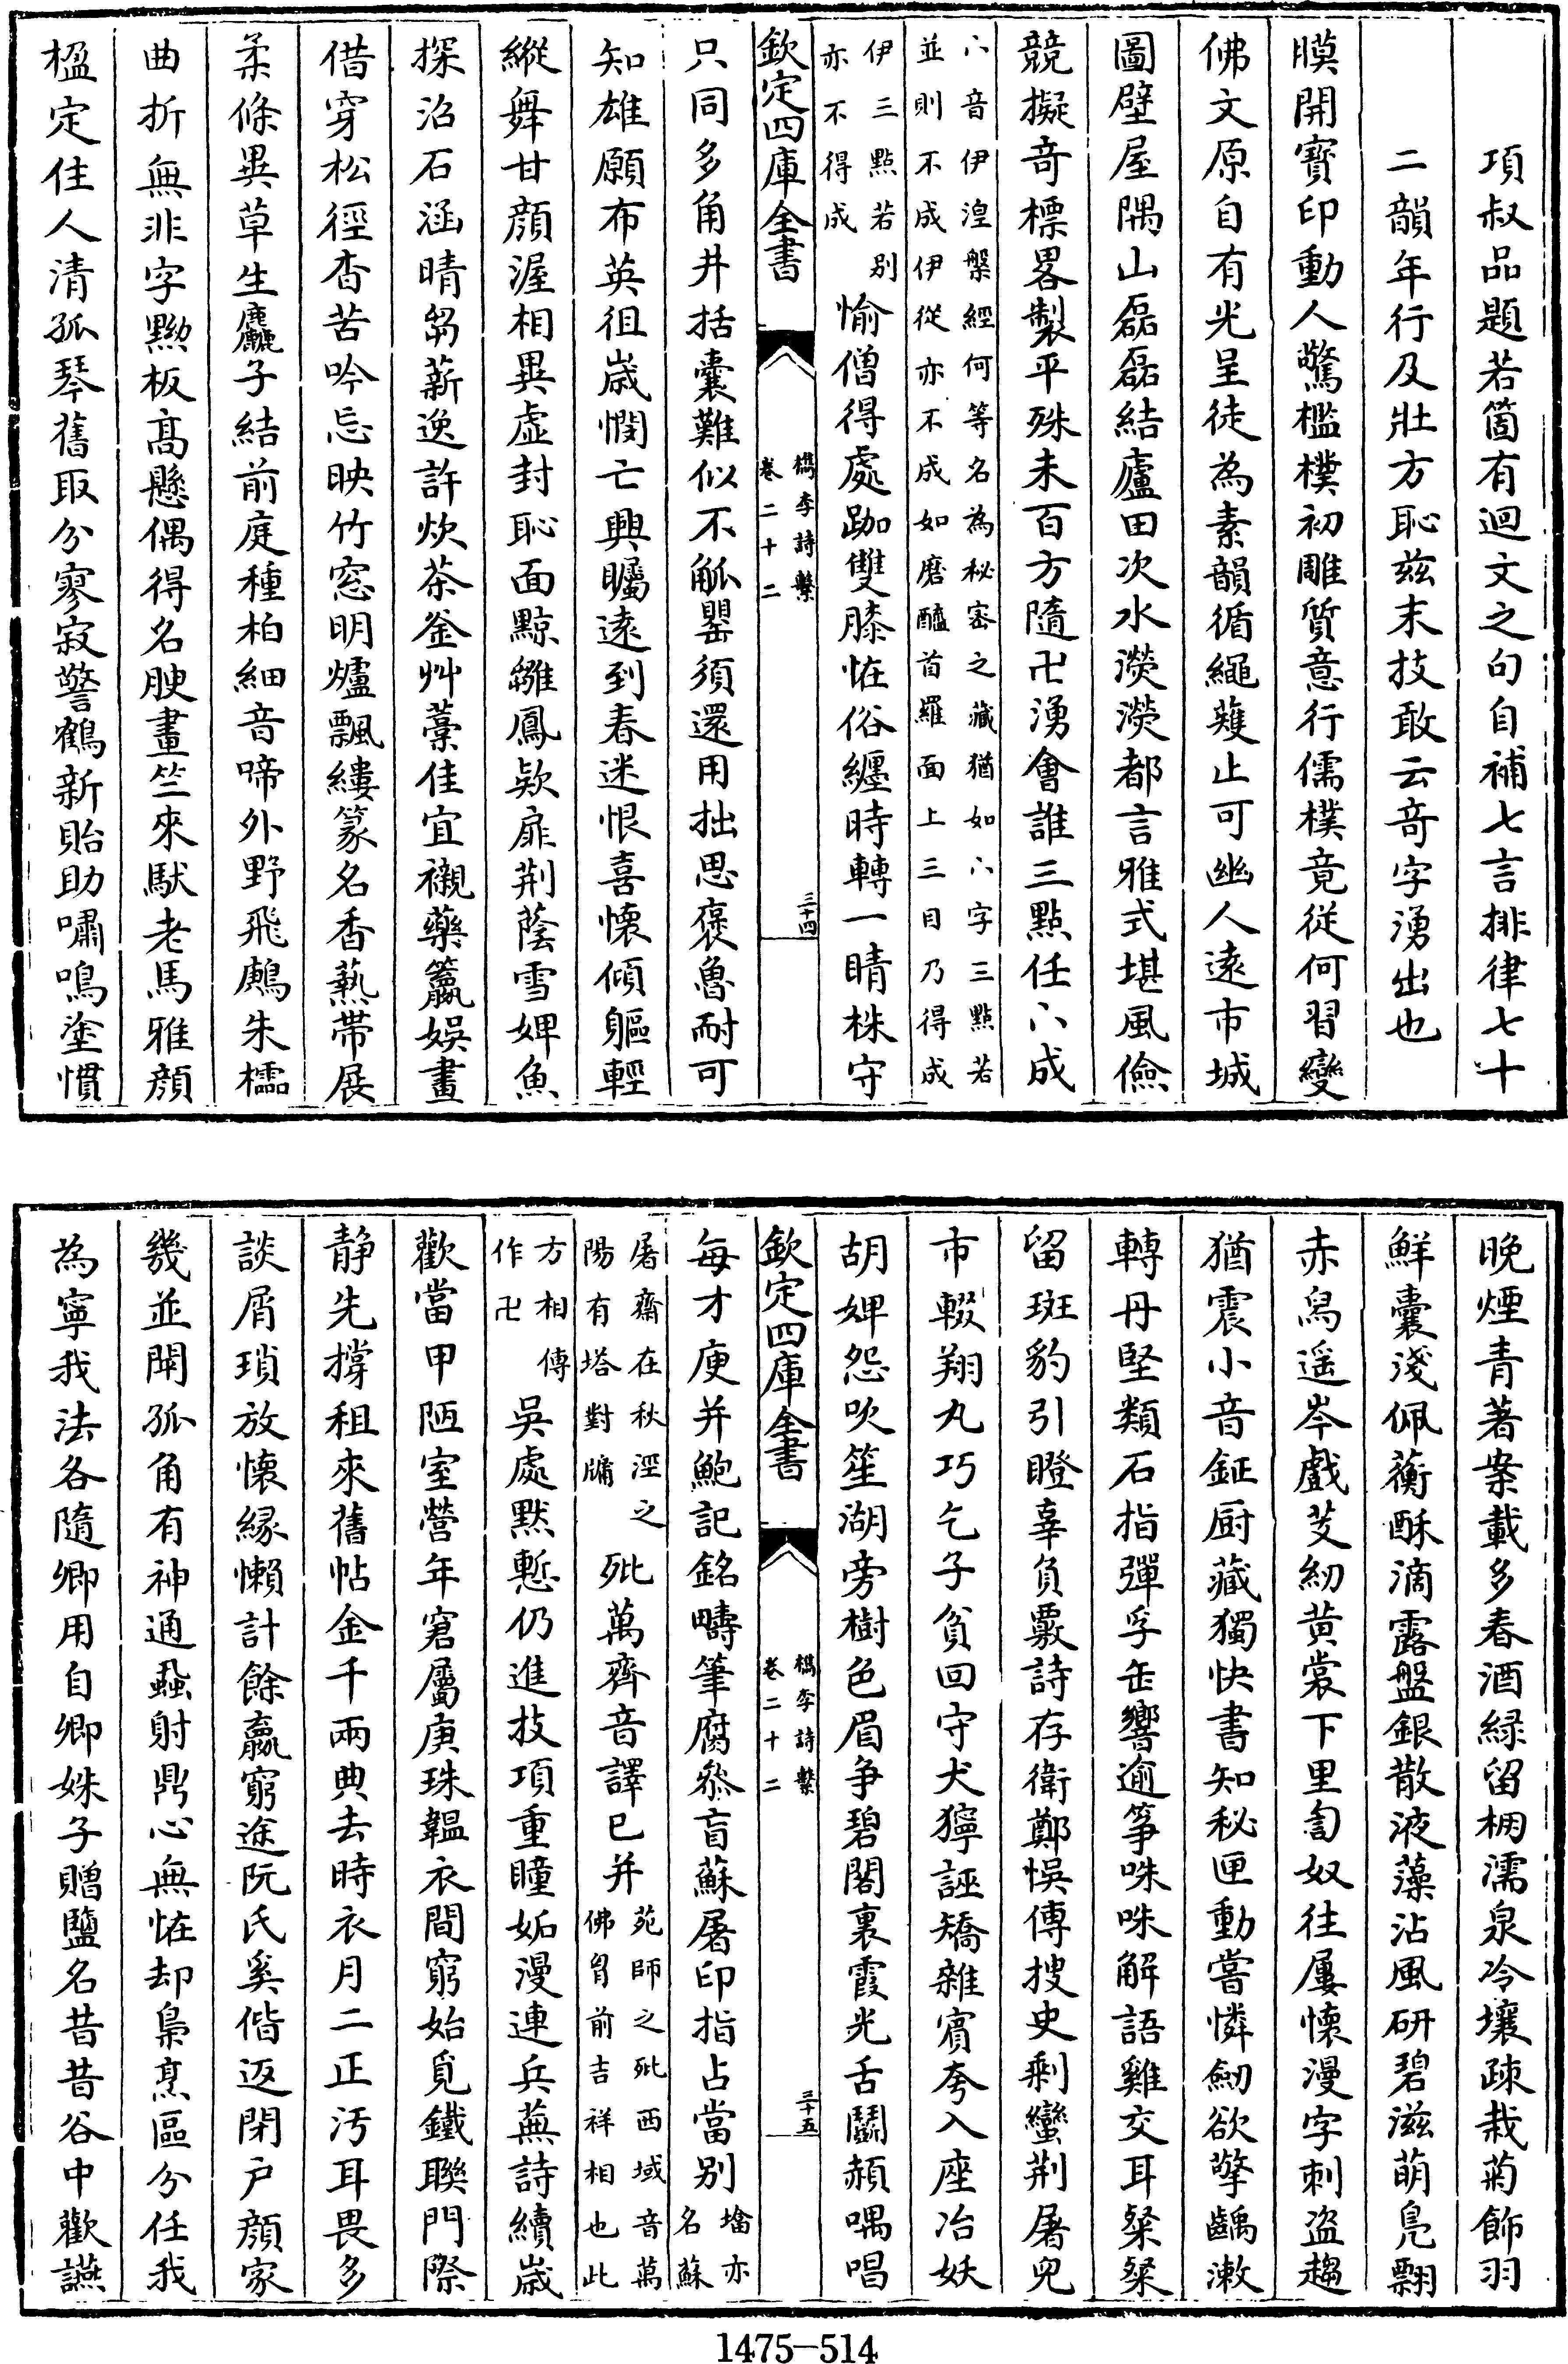 項叔品題若箇有迴文之句自補七言排律七十
二韻年行及壯方恥兹末技敢云竒字湧出也
膜開寳印動人驚檻樸初雕質意行儒樸竟從何習變
佛文原自有光呈徒為素韻循繩蕿止可幽人遠市城
圖壁屋隅山磊磊結廬田次水濙濙都言雅式堪風儉
競擬竒標畧製平殊未百方隨卍湧會誰三點任八成
八音伊湼槃經何等名為秘密之藏猶如八字三點若
並則不成伊從亦不成如磨醯首羅面上三目乃得成
伊三點若别
亦不得成
愉僧得處跏雙膝恠俗纏時轉一睛株守
欽定四庫全書
檇李詩繫
卷二十二
三十四
只同多角井括囊難似不觚罌須還用拙思褒魯耐可
知雄願布英徂歲憫亡興矚逺到春迷恨喜懷傾軀輕
縱舞甘顔渥相異虚封恥面黥雝鳳欵扉荆蔭雪婢魚
探沼石涵晴芻薪逸許炊茶釜艸藁佳宜襯藥籯娯畫
借穿松徑杳苦吟忘映竹窓明爐飄縷篆名香爇帶展
柔條異草生麤子結前庭種柏細音啼外野飛鷓朱櫺
曲折無非字黝板髙懸偶得名腴畫竺來馱老馬雅顔
楹定住人清孤琴舊取分寥寂警鶴新貽助嘯鳴塗慣
晩煙青著案載多春酒緑留枬濡泉冷壤疎栽菊飾羽
鮮囊淺佩蘅酥滴露盤銀散液藻沾風硏碧滋萌鳬翾
赤舄遥岑戲芰紉黄裳下里訇奴往屢懷漫字刺盗趨
猶震小音鉦厨藏獨快書知秘匣動嘗憐劒欲擎齲漱
轉丹堅類石指彈孚缶響逾筝咮咮解語雞交耳粲粲
留斑豹引瞪辜負覈詩存衛鄭悞傳搜史剩蠻荆屠兒
市輟翔丸巧乞子貧回守犬獰誣矯雜賓夸入座冶妖
胡婢怨吹笙湖旁樹色眉争碧閣裏霞光舌鬭赬喁唱
欽定四庫全書
檇李詩繫
卷二十二
三十五
每才庚并鮑記銘疇筆腐叅盲蘇屠印指占當别
墖亦
名蘇
屠齋在秋涇之
陽有塔對牗
玭萬齊音譯已并
苑師之玭西域音萬
佛胷前吉祥相也此
方相傳
作卍
吳處默慙仍進技項重瞳妬漫連兵蕪詩續歲
歡當甲陋室營年窘屬庚珠韞衣間窮始覓鐵聨門際
静先撐租來舊帖金千兩典去時衣月二正汚耳畏多
談屑瑣放懷縁懶計餘羸窮途阮氏奚偕返閉户顔家
幾並閈孤角有神通蝨射鼎心無恠却梟烹區分任我
為寧我法各隨卿用自卿姝子贈鹽名昔昔谷中歡讌
1475-514